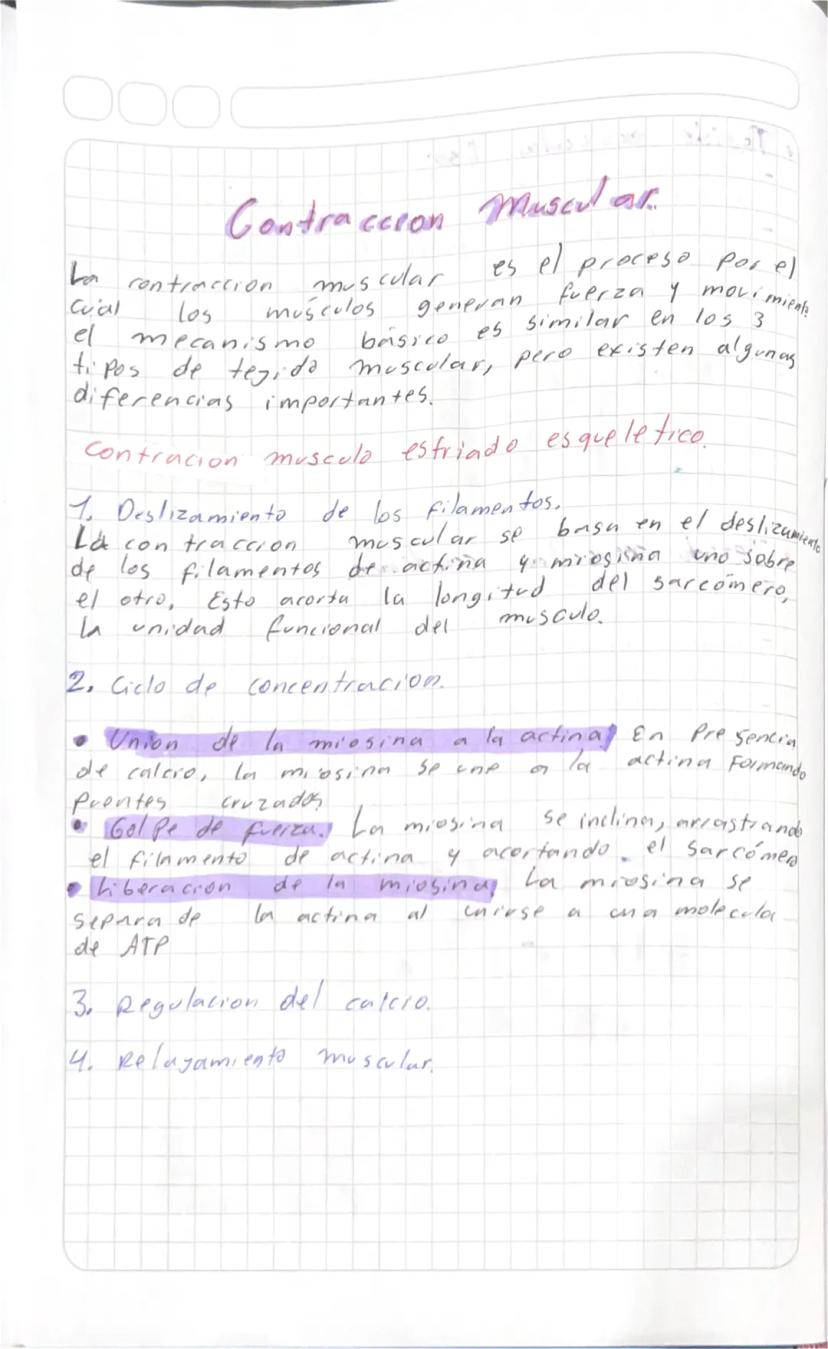 Contraccion Muscular.
La contraccion muscular es el proceso por el
cual los músculos generan fuerza y movimiento
el mecanismo básico es similar en los 3
tipos de tejido muscular, pero existen algunas
diferencias importantes.
Contracion musculo estriado esqueletico.
1. Deslizamiento de los filamentos.
La contraccion muscular se basa en el deslizamiento
de los filamentos de actina y miosina uno sobre
el otro. Esto acorta la longitud del sarcómero,
la unidad funcional del musculo.
2. Ciclo de concentracion.
• Union de la miosina a la actina: En presencia
de calcio, la miosina se une a la actina formando
puentes cruzados
• Golpe de fuerza. La miosina se inclina, arrastrando
el filamento de actina y acortando el sarcómero
• Liberacion de la miosina, La miosina se
separa de la actina al unirse a una molecula
de ATP
3. Regulacion del calcio.
4. Relajamiento muscular.